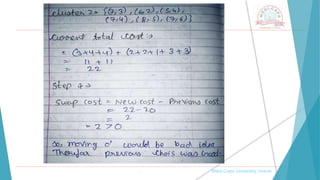 cluster 2 = {(7,3), (6,2), (6,4),
(7,4), (8,5), (7,6)}
current total cost →
= (3+4+4) + (2+2+1+3+3)
= 11 + 11
= 22
Step 4 →
Swap cost = New cost - Previous cost
= 22-20
= 2
= 2 > 0
So, moving o' would be bad idea
Therefor previous choice was Good.